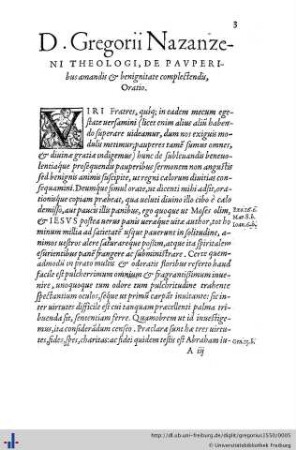 3
D. Gregorii Nazanze-
NI THEOLOGI, DE PAVPERI-
bus amandis & benignitate complectendis,
Oratio.
VIRI Fratres, quiq; in eadem mecum ege-
state versamini (licet enim alius alium haben-
do superare uideamur, dum nos exiguis mo-
dulis metimur, pauperes tamē sumus omnes,
& diuinæ gratiæ indigemus) hunc de subleuandis beneuo-
lentiaque prosequendis pauperibus sermonem non angustis
sed benignis animis suscipite, ut regni cælorum diuitias con-
sequamini. Deumque simul orate, ut dicenti mihi adsit, orā-
tionisque copiam præbeat, qua ueluti diuino illo cibo è cælo
demisso, aut paucis illis panibus, ego quoque ut Moses olim, Exo.16.6.
& IESVS postea uerus panis ueræque uitæ author, tot ho Mat.8.b.
minum millia ad satietatē usque pauerunt in solitudine, a- Ioan.6.b.
nimos uestros alere saturareque possim, atque ita spiritalem
esurientibus panē frangere ac subministrare. Certe quem-
admodū in prato multis & odoratis floribus referto haud
facile est pulcherrimum omnium & fragrantissimum inue-
nire, unoquoque tum odore tum pulchritudine trahente
spectantium oculos, séque ut primū carpās inuitante: sic in-
ter uirtutes difficile est cui tanquam præcellenti palma tri-
buenda sit, sententiam ferre. Quamobrem ut id inuestige-
mus, ita consideradum censeo. Præclara sunt hæ tres uirtu-
tes, fides, spes, charitas: ac fidei quidem testis est Abraham iu- Gen.15.b.
A iij
http://dl.ub.uni-freiburg.de/diglit/gregorius1550/0005
© Universitätsbibliothek Freiburg